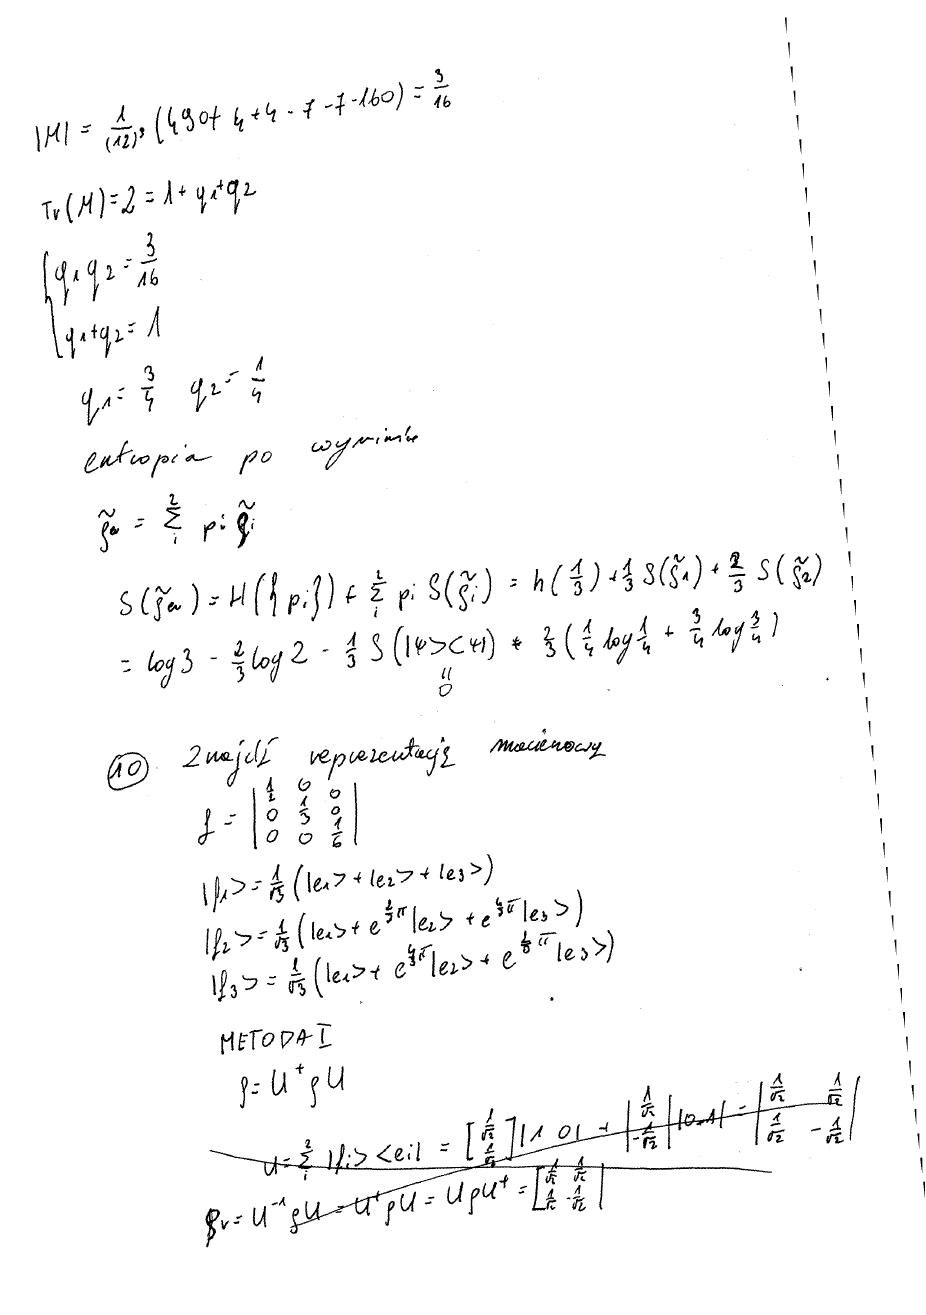 |M| = 1/(12)³ (490+4+4-7-7-160) = 3/16
Tr(M)=2=1+q1+q2
{ q1q2 = 3/16
q1+q2 = 1
q1 = 3/4 q2 = 1/4
entropia po
ρ̃a = Σ_i^2 pi ρ̃i
S(ρ̃a) = H({pi}) + Σ_i^2 pi S(ρ̃i) = h(1/3) + 1/3 S(ρ̃1) + 2/3 S(ρ̃2)
= log3 - 2/3 log2 - 1/3 S(|ψ><ψ|) * 2/3 (1/4 log 1/4 + 3/4 log 3/4)
"
0
10 Znajdź reprezentację macierzowy
ρ = | 1/2 0 0
0 1/3 0
0 0 1/6 |
|f1> = 1/√3 (|e1>+|e2>+|e3>)
|f2> = 1/√3 (|e1>+e^{2/3π}|e2>+e^{4/3π}|e3>)
|f3> = 1/√3 (|e1>+e^{4/3π}|e2>+e^{8/3π}|e3>)
METODA I
ρ = U⁺ρU
U = Σ_i^2 |fi><ei| = [1/√2 1/√2] |1 0| + |1/√2 -1/√2| |0 1| = |1/√2 1/√2 1/√2 -1/√2|
ρv = U⁻¹ρU = U⁺ρU = UρU⁺ = [1/√2 1/√2 1/√2 -1/√2|